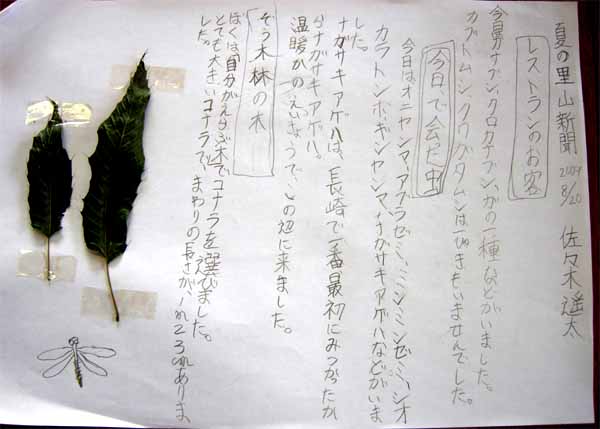 夏の里山新聞 2009 8/20 佐々木遥太
レストランのお客
今日はカナブン、クロカナブン、ガの一種などがいました。
カブトムシ、クワガタムシは一ぴきもいませんでした。
今日で会た虫
今日はオニヤンマ、アブラゼミ、ミンミンゼミ、シオ
カラトンボ、ギンヤンマ、ナガサキアゲハなどがいま
した。
ナガサキアゲハは、長崎で一番最初にみつかったか
らナガサキアゲハ。
温暖かのえいきょうで、この辺に来ました。
ぞう木林の木
ぼくは「自分がえらぶ木」でコナラを選びました。
とても大きいコナラで、まわりの長さが、
ありま
した。